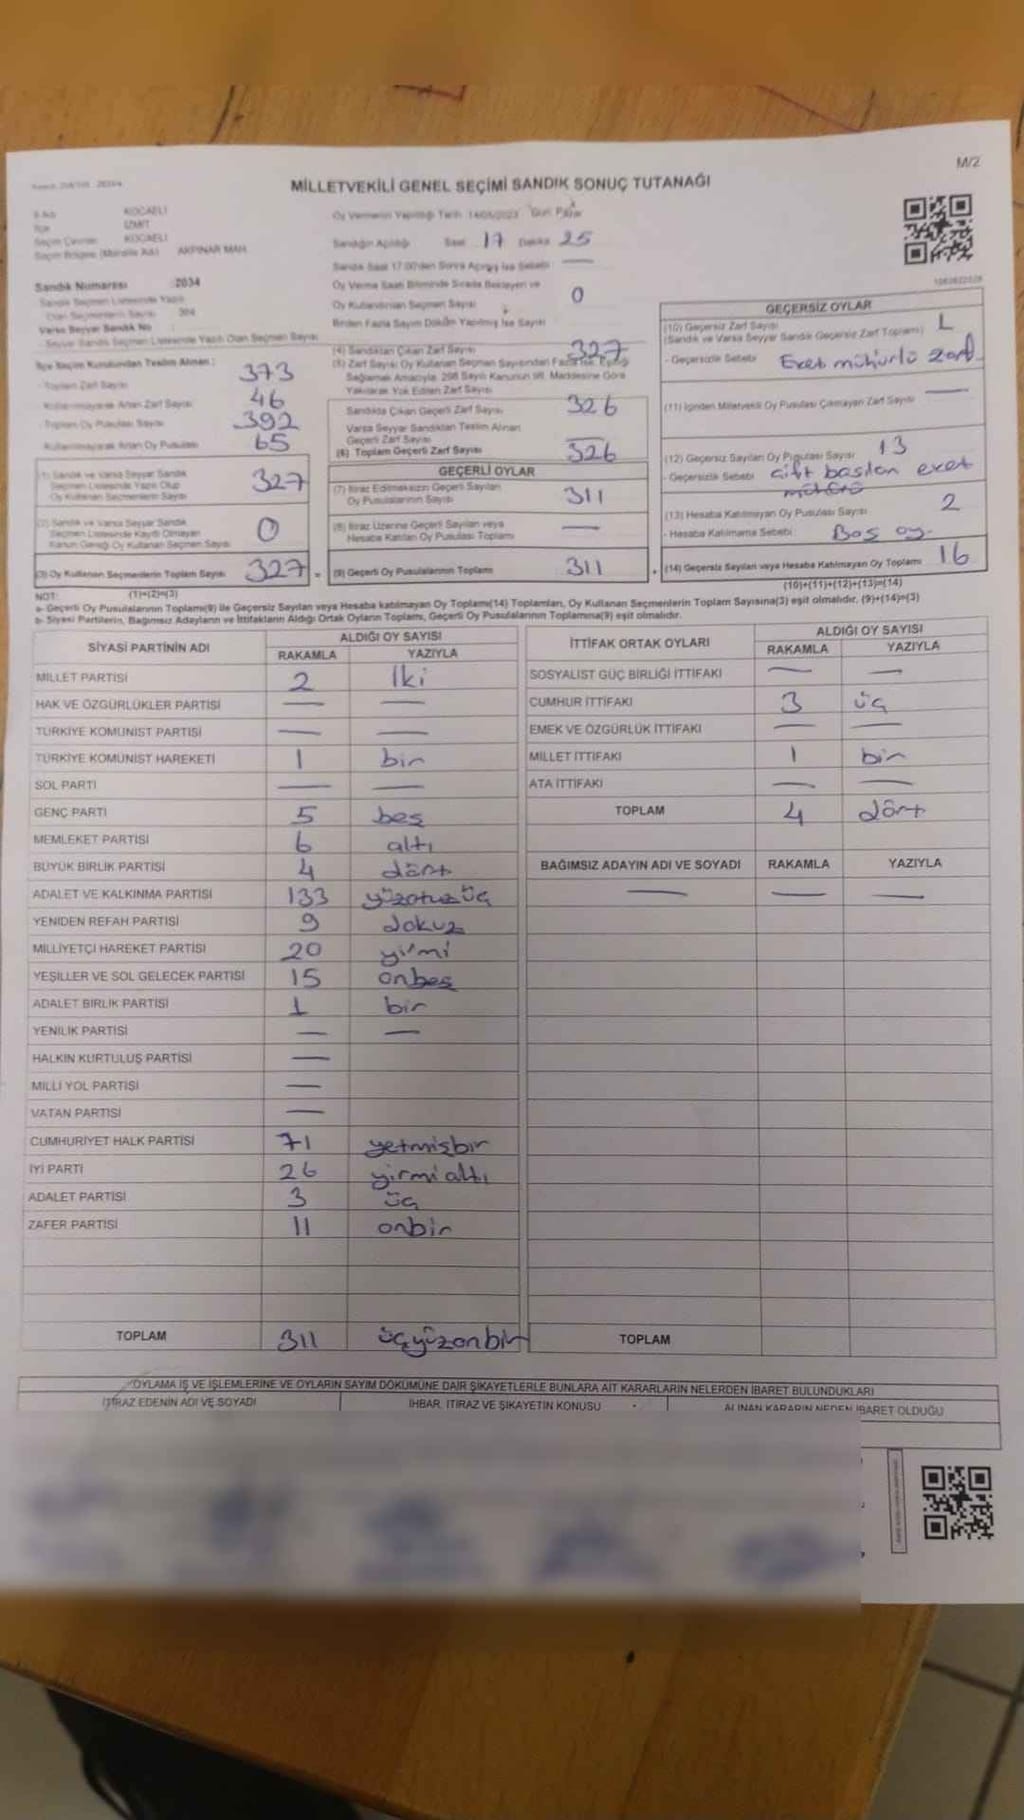 M/2
MİLLETVEKİLİ GENEL SEÇİMİ SANDIK SONUÇ TUTANAĞI
İl Adı KOCAELİ
İlçe İZMİT
Seçim Çevresi KOCAELİ
Seçim Bölgesi (Mahalle Adı) AKPINAR MAH.
Oy Vermenin Yapıldığı Tarih 14/05/2023 Gün: Pazar
Sandığın Açıldığı Saat 17 Dakika 25
Sandık Saat 17:00'den Sonra Açılmış İse Sebebi —
Oy Verme Saati Bitiminde Sırada Bekleyen ve
Oy Kullandırılan Seçmen Sayısı 0
Birden Fazla Sayım Döküm Yapılmış İse Sayısı
Sandık Numarası 2034
Sandık Seçmen Listesinde Yazılı
Olan Seçmenlerin Sayısı
Varsa Seyyar Sandık No
Seyyar Sandık Seçmen Listesinde Yazılı Olan Seçmen Sayısı
İlçe Seçim Kurulundan Teslim Alınan :
- Toplam Zarf Sayısı 373
Kullanılmayarak Artan Zarf Sayısı 46
- Toplam Oy Pusulası Sayısı 392
Kullanılmayarak Artan Oy Pusulası 65
(1) Sandık ve Varsa Seyyar Sandık
Seçmen Listesinde Yazılı Olup
Oy Kullanan Seçmenlerin Sayısı 327
(2) Sandık ve Varsa Seyyar Sandık
Seçmen Listesinde Kayıtlı Olmayan
Kanun Gereği Oy Kullanan Seçmen Sayısı 0
(3) Oy Kullanan Seçmenlerin Toplam Sayısı 327 =
(4) Sandıktan Çıkan Zarf Sayısı 327
(5) Zarf Sayısı Oy Kullanan Seçmen Sayısından Fazla İse, Eşitliği
Sağlamak Amacıyla, 298 Sayılı Kanunun 98. Maddesine Göre
Yakılarak Yok Edilen Zarf Sayısı
Sandıkta Çıkan Geçerli Zarf Sayısı 326
Varsa Seyyar Sandıktan Teslim Alınan
Geçerli Zarf Sayısı —
(6) Toplam Geçerli Zarf Sayısı 326
GEÇERLİ OYLAR
(7) İtiraz Edilmeksizin Geçerli Sayılan
Oy Pusulalarının Sayısı 311
(8) İtiraz Üzerine Geçerli Sayılan veya
Hesaba Katılan Oy Pusulası Toplamı —
(9) Geçerli Oy Pusulalarının Toplamı 311 +
GEÇERSİZ OYLAR
(10) Geçersiz Zarf Sayısı
(Sandık ve Varsa Seyyar Sandık Geçersiz Zarf Toplamı) 1
- Geçersizlik Sebebi Evet mühürlü zarf
(11) İçinden Milletvekili Oy Pusulası Çıkmayan Zarf Sayısı —
(12) Geçersiz Sayılan Oy Pusulası Sayısı 13
- Geçersizlik Sebebi çift basılan evet
(13) Hesaba Katılmayan Oy Pusulası Sayısı 2
- Hesaba Katılmama Sebebi Boş oy
(14) Geçersiz Sayılan veya Hesaba Katılmayan Oy Toplamı 16
NOT: (1)+(2)=(3)
(10)+(11)+(12)+(13)=(14)
a- Geçerli Oy Pusulalarının Toplamı(9) ile Geçersiz Sayılan veya Hesaba katılmayan Oy Toplamı(14) Toplamları, Oy Kullanan Seçmenlerin Toplam Sayısına(3) eşit olmalıdır. (9)+(14)=(3)
b- Siyasi Partilerin, Bağımsız Adayların ve İttifakların Aldığı Ortak Oyların Toplamı, Geçerli Oy Pusulalarının Toplamına(9) eşit olmalıdır.
SİYASİ PARTİNİN ADI ALDIĞI OY SAYISI
RAKAMLA YAZIYLA
MİLLET PARTİSİ 2 İki
HAK VE ÖZGÜRLÜKLER PARTİSİ — —
TÜRKİYE KOMÜNİST PARTİSİ — —
TÜRKİYE KOMÜNİST HAREKETİ 1 bir
SOL PARTİ — —
GENÇ PARTİ 5 beş
MEMLEKET PARTİSİ 6 altı
BÜYÜK BİRLİK PARTİSİ 4 dört
ADALET VE KALKINMA PARTİSİ 133 yüzotuzüç
YENİDEN REFAH PARTİSİ 9 dokuz
MİLLİYETÇİ HAREKET PARTİSİ 20 yirmi
YEŞİLLER VE SOL GELECEK PARTİSİ 15 onbeş
ADALET BİRLİK PARTİSİ 1 bir
YENİLİK PARTİSİ — —
HALKIN KURTULUŞ PARTİSİ —
MİLLİ YOL PARTİSİ —
VATAN PARTİSİ —
CUMHURİYET HALK PARTİSİ 71 yetmişbir
İYİ PARTİ 26 yirmialtı
ADALET PARTİSİ 3 üç
ZAFER PARTİSİ 11 onbir
TOPLAM 311 üçyüzonbir
İTTİFAK ORTAK OYLARI ALDIĞI OY SAYISI
RAKAMLA YAZIYLA
SOSYALİST GÜÇ BİRLİĞİ İTTİFAKI — —
CUMHUR İTTİFAKI 3 üç
EMEK VE ÖZGÜRLÜK İTTİFAKI — —
MİLLET İTTİFAKI 1 bir
ATA İTTİFAKI — —
TOPLAM 4 dört
BAĞIMSIZ ADAYIN ADI VE SOYADI RAKAMLA YAZIYLA
— — —
TOPLAM
OYLAMA İŞ VE İŞLEMLERİNE VE OYLARIN SAYIM DÖKÜMÜNE DAİR ŞİKAYETLERLE BUNLARA AİT KARARLARIN NELERDEN İBARET BULUNDUKLARI
İTİRAZ EDENİN ADI VE SOYADI İHBAR, İTİRAZ VE ŞİKAYETİN KONUSU ALINAN KARARIN NEDEN İBARET OLDUĞU